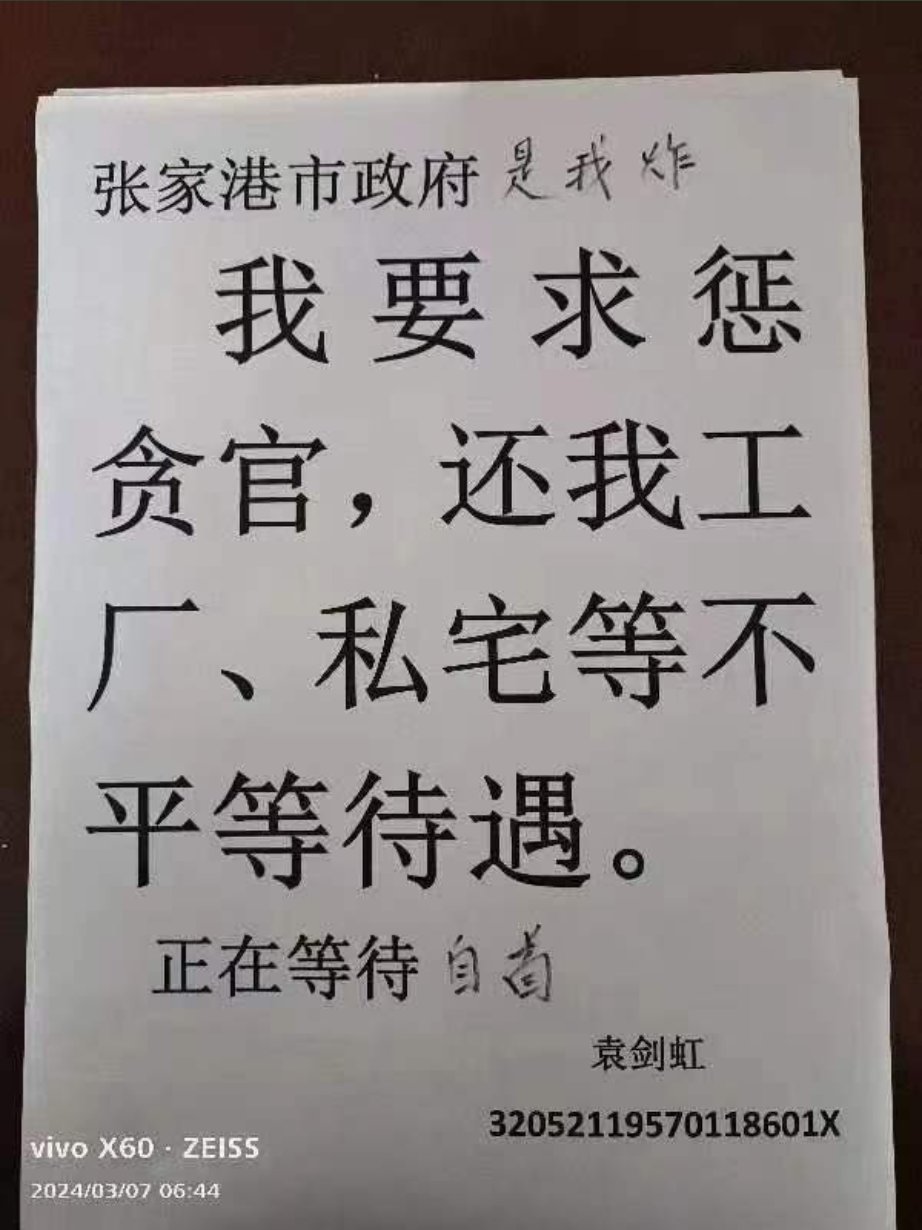 张家港市政府 是我炸
我要求惩
贪官，还我工
厂、私宅等不
平等待遇。
正在等待 自首
袁剑虹
32052119570118601X
vivo X60 · ZEISS
2024/03/07 06:44